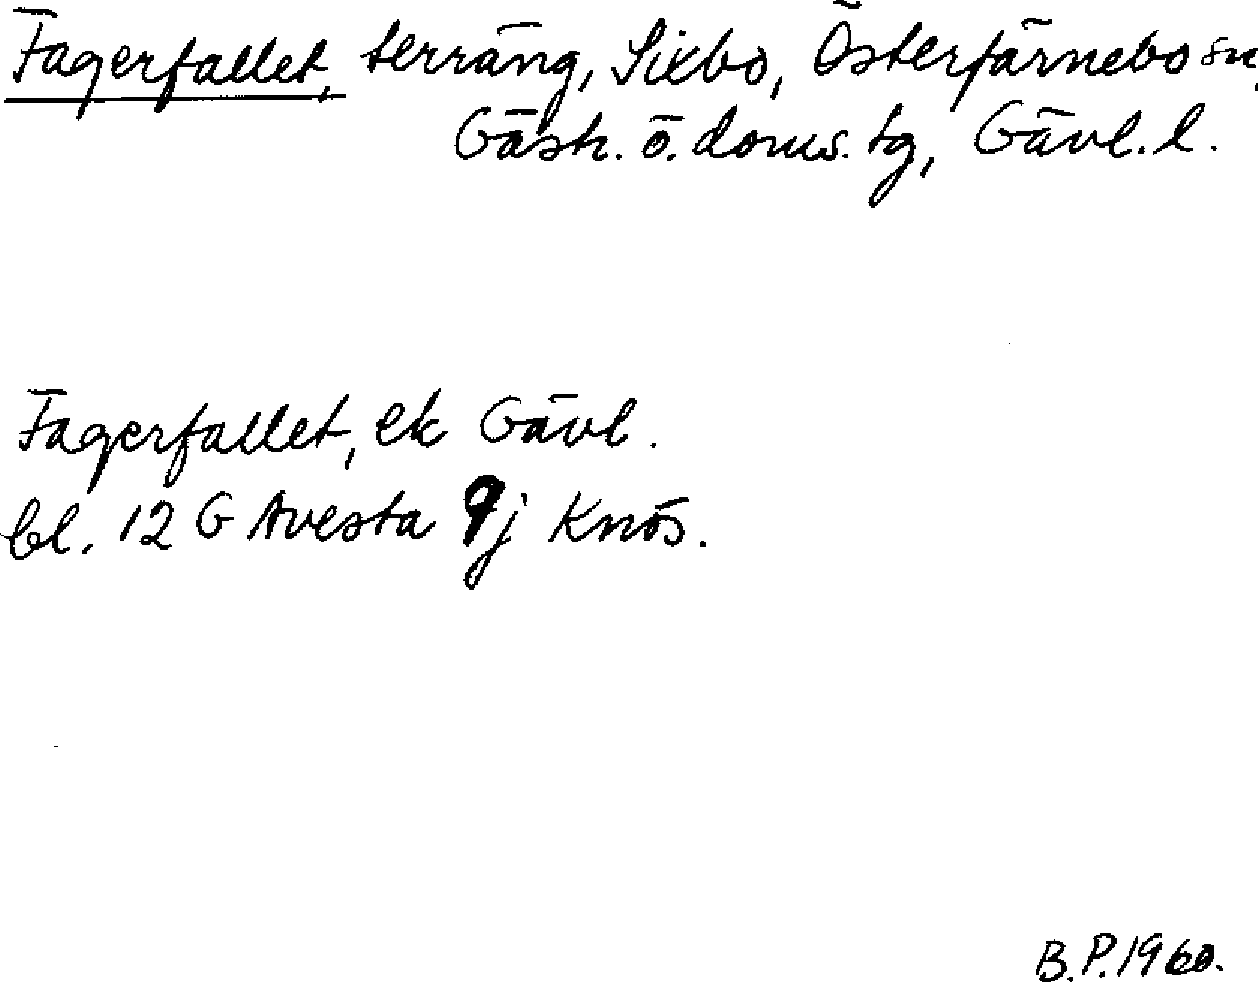 Fagerfallet, terräng, Sixbo, Österfärnebo sn,
Gästr. ö. doms. tg, Gävl. l.
Fagerfallet, ek Gävl.
bl. 12 G Avesta 9j Knös.
B.P. 1960.